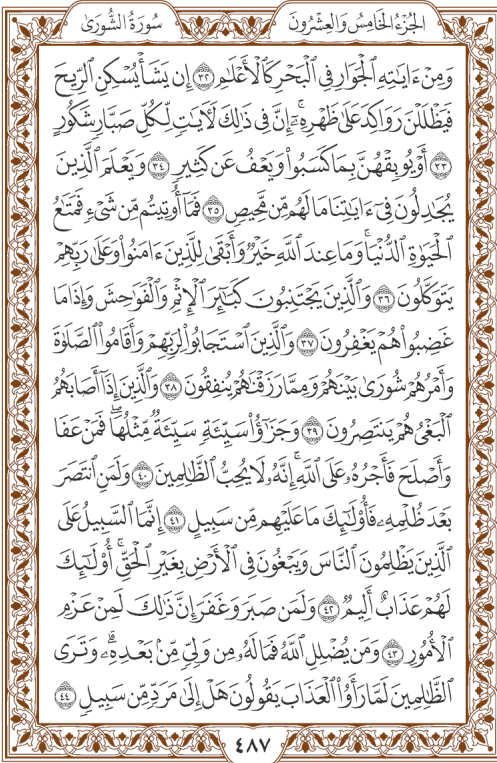 سُورَةُ الشُّورَىٰ
الجُزْءُ الخَامِسُ وَالعِشْرُونَ
وَمِنْ ءَايَٰتِهِ الْجَوَارِ فِي الْبَحْرِ كَالْأَعْلَٰمِ ٣٢ إِن يَشَأْ يُسْكِنِ الرِّيحَ
فَيَظْلَلْنَ رَوَاكِدَ عَلَىٰ ظَهْرِهِۦٓ ۚ إِنَّ فِي ذَٰلِكَ لَأٓيَٰتٍ لِّكُلِّ صَبَّارٍ شَكُورٍ
٣٣ أَوْ يُوبِقْهُنَّ بِمَا كَسَبُوا۟ وَيَعْفُ عَن كَثِيرٍ ٣٤ وَيَعْلَمَ الَّذِينَ
يُجَٰدِلُونَ فِىٓ ءَايَٰتِنَا مَا لَهُم مِّن مَّحِيصٍ ٣٥ فَمَآ أُوتِيتُم مِّن شَىْءٍ فَمَتَٰعُ
الْحَيَوٰةِ الدُّنْيَا ۖ وَمَا عِندَ اللَّهِ خَيْرٌ وَأَبْقَىٰ لِلَّذِينَ ءَامَنُوا۟ وَعَلَىٰ رَبِّهِمْ
يَتَوَكَّلُونَ ٣٦ وَالَّذِينَ يَجْتَنِبُونَ كَبَٰٓئِرَ الْإِثْمِ وَالْفَوَٰحِشَ وَإِذَا مَا
غَضِبُوا۟ هُمْ يَغْفِرُونَ ٣٧ وَالَّذِينَ اسْتَجَابُوا۟ لِرَبِّهِمْ وَأَقَامُوا۟ الصَّلَوٰةَ
وَأَمْرُهُمْ شُورَىٰ بَيْنَهُمْ وَمِمَّا رَزَقْنَٰهُمْ يُنفِقُونَ ٣٨ وَالَّذِينَ إِذَآ أَصَابَهُمُ
الْبَغْىُ هُمْ يَنتَصِرُونَ ٣٩ وَجَزَٰٓؤُا۟ سَيِّئَةٍ سَيِّئَةٌ مِّثْلُهَا ۖ فَمَنْ عَفَا
وَأَصْلَحَ فَأَجْرُهُۥ عَلَى اللَّهِ ۚ إِنَّهُۥ لَا يُحِبُّ الظَّٰلِمِينَ ٤٠ وَلَمَنِ انتَصَرَ
بَعْدَ ظُلْمِهِۦ فَأُو۟لَٰٓئِكَ مَا عَلَيْهِم مِّن سَبِيلٍ ٤١ إِنَّمَا السَّبِيلُ عَلَى
الَّذِينَ يَظْلِمُونَ النَّاسَ وَيَبْغُونَ فِي الْأَرْضِ بِغَيْرِ الْحَقِّ ۚ أُو۟لَٰٓئِكَ
لَهُمْ عَذَابٌ أَلِيمٌ ٤٢ وَلَمَن صَبَرَ وَغَفَرَ إِنَّ ذَٰلِكَ لَمِنْ عَزْمِ
الْأُمُورِ ٤٣ وَمَن يُضْلِلِ اللَّهُ فَمَا لَهُۥ مِن وَلِىٍّ مِّنۢ بَعْدِهِۦ ۗ وَتَرَى
الظَّٰلِمِينَ لَمَّا رَأَوُا۟ الْعَذَابَ يَقُولُونَ هَلْ إِلَىٰ مَرَدٍّ مِّن سَبِيلٍ ٤٤
٤٨٧